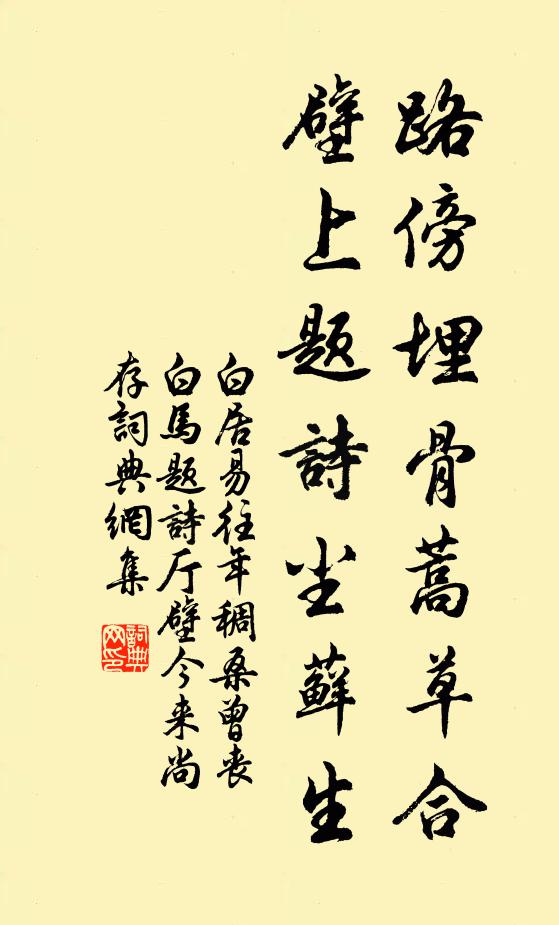 路傍埋骨蒿草合
壁上題詩尘蘚生
白居易往年稠桑曾丧
白馬題詩厅壁今来尚
存詞典網集
詞典
网印